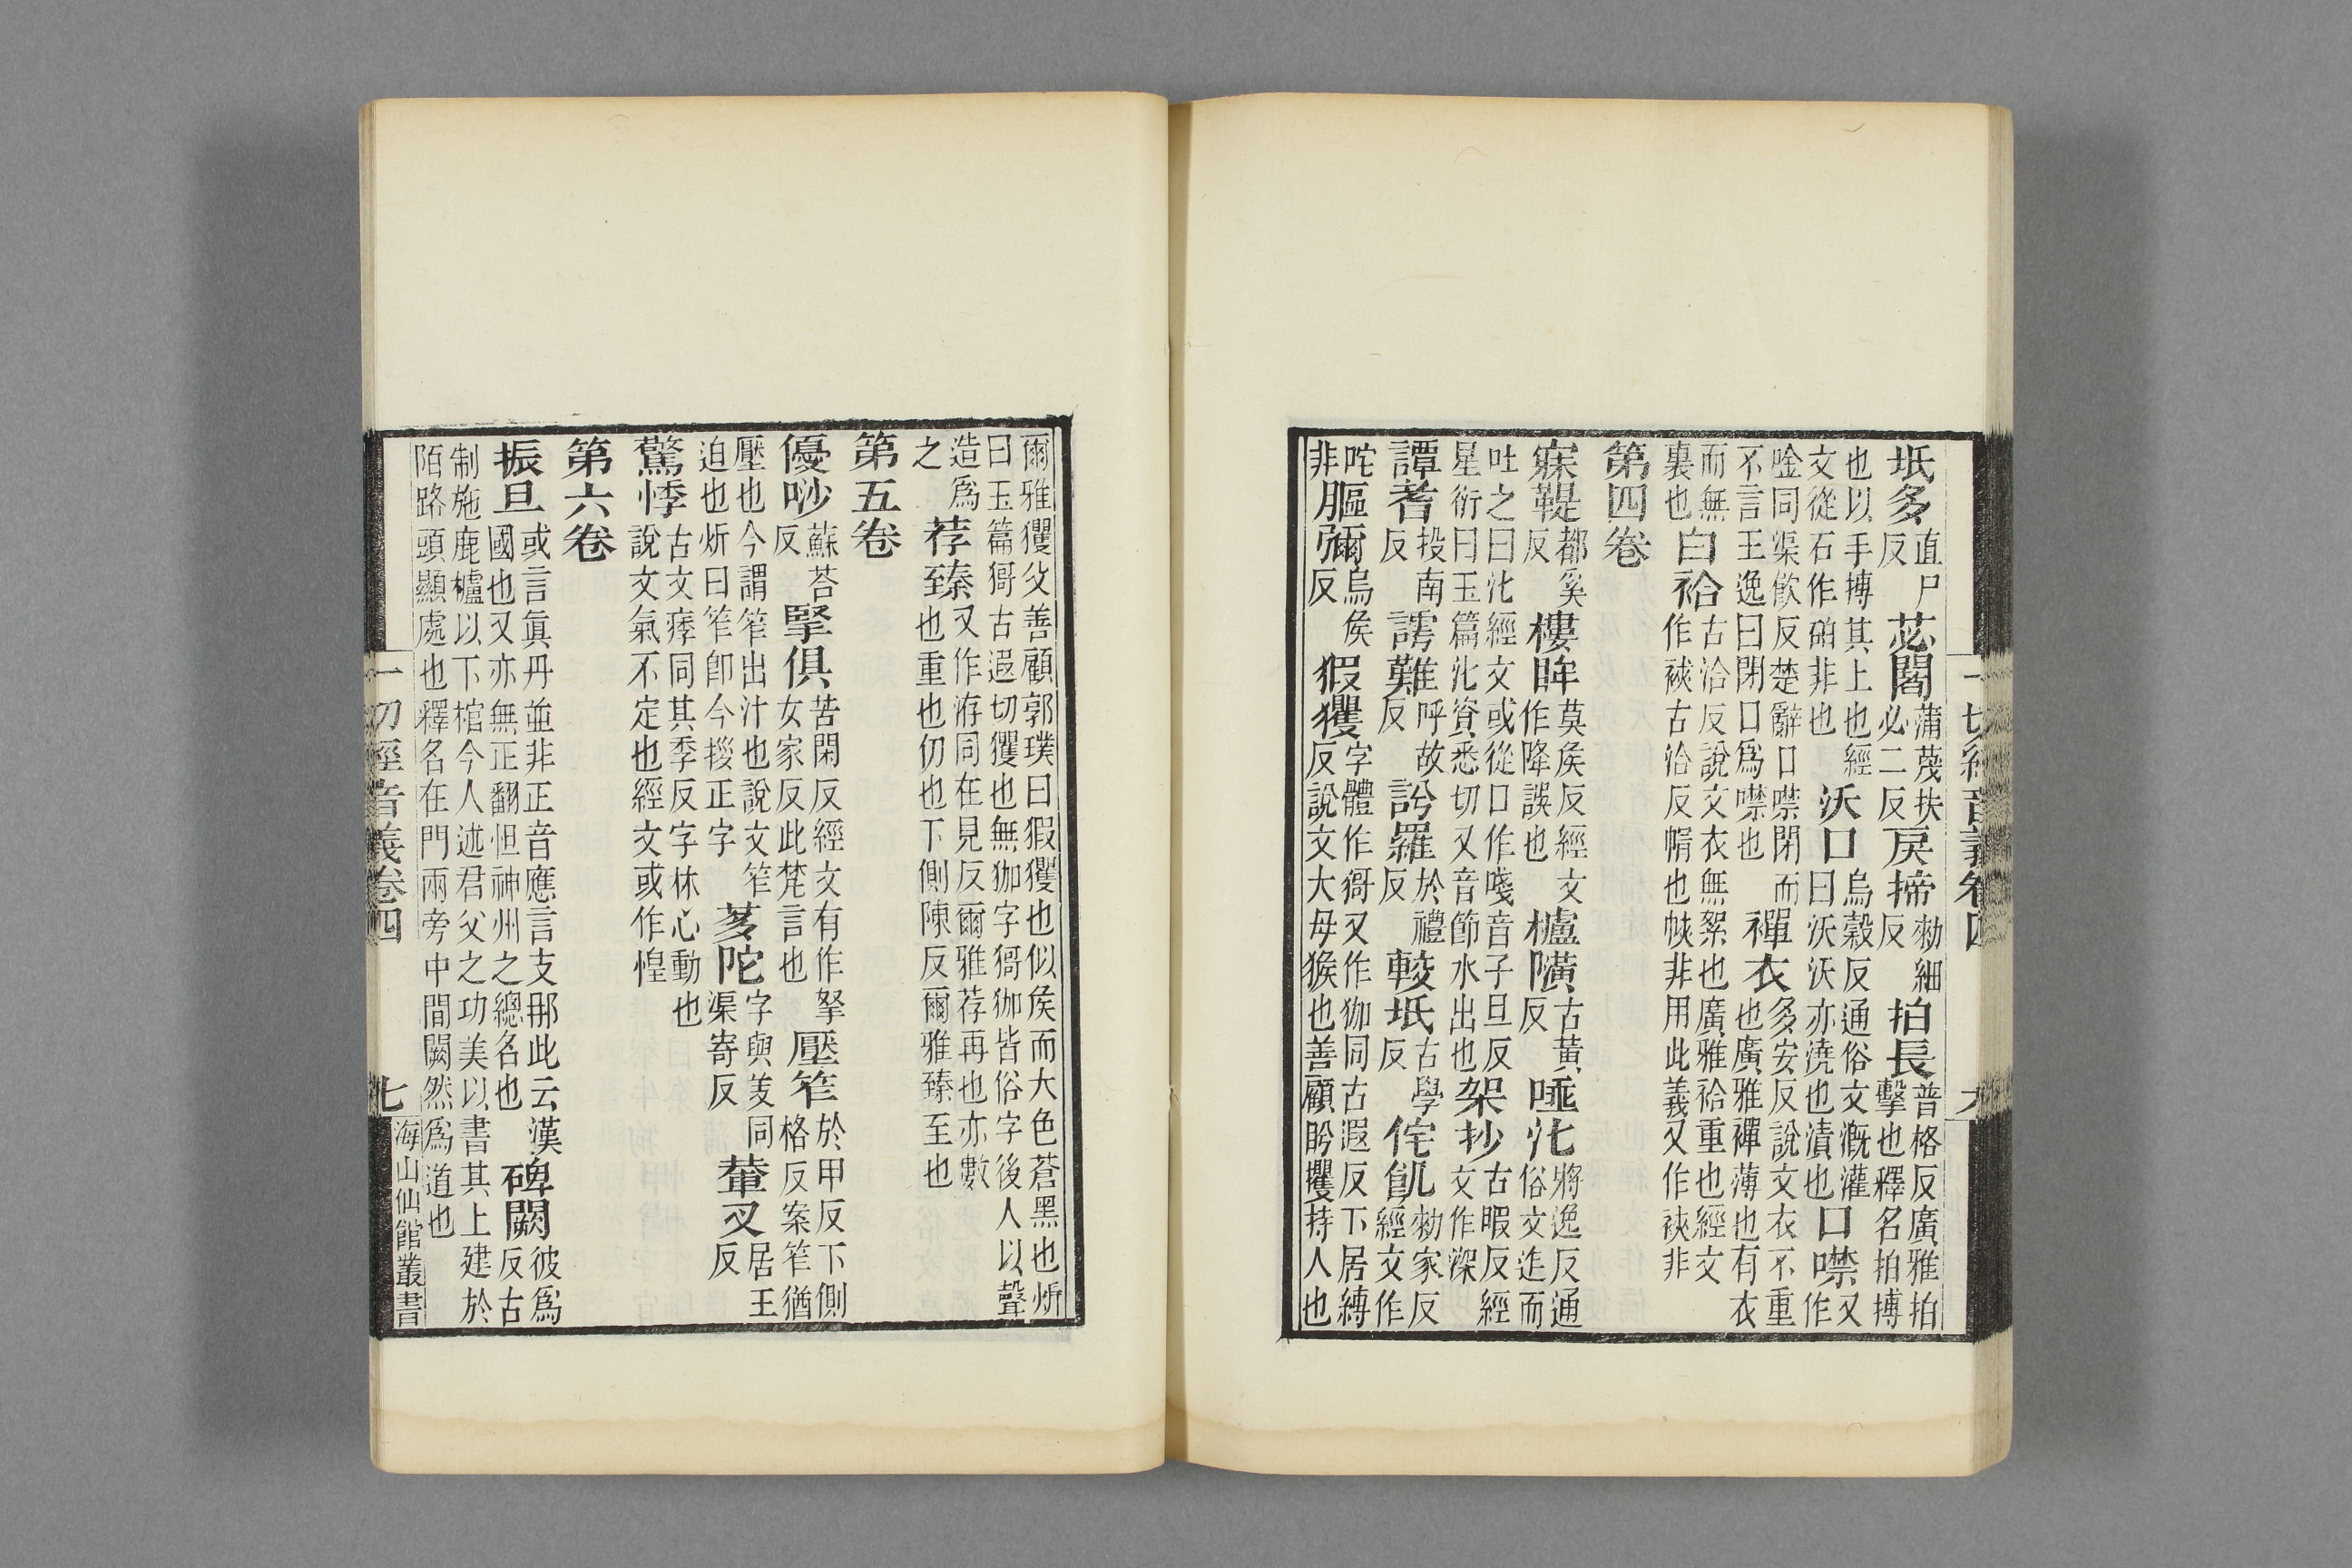 一切經音義卷四
坻多直尸反苾閣蒲蔑扶必二反戾揥勑細反拍長普格反廣雅拍擊也釋名拍搏
也以手搏其上也經文從石作砶非也沃口烏穀反通俗文溉灌曰沃沃亦澆也漬也口噤又作
唫同渠飮反楚辭口噤閉而不言王逸曰閉口爲噤也襌衣多安反說文衣不重也廣雅襌薄也有衣
而無裏也白袷古洽反說文衣無絮也廣雅袷重也經文作裌古洽反帩也帙非用此義又作裌非
第四卷
寐鞮都奚反樓眸莫侯反經文作降誤也櫨隫古黃反唾沘將逸反通俗文迸而
吐之曰沘經文或從口作音子旦反星衍曰玉篇沘資悉切又音節水出也架抄古暇反經文作深
譚耆投南反謣難呼故反訡羅於禮反較坻古學反侘飢勑家反經文作
咤非彌烏侯反猳玃字體作又作㹢同古遐反下居縛反說文大母猴也善顧盻攫持人也
爾雅玃父善顧郭璞曰猳玃也似侯而大色蒼黑也炘曰玉篇古遐切玃也無㹢字㹢皆俗字後人以聲
造爲之荐臻又作洊同在見反爾雅荐再也亦數也重也仍也下側陳反爾雅臻至也
第五卷
優吵蘇荅反掔俱苦閑反經文有作拏女家反此梵言也壓笮於甲反下側格反案笮猶
壓也今謂笮出汁也說文笮迫也炘曰笮卽今正字茤陀字與芰同渠寄反叉居王反
驚悸古文痵同其季反字林心動也說文氣不定也經文或作惶
第六卷
振旦或言眞丹並非正音應言支那此云漢國也又亦無正翻怛神州之總名也碑闕彼爲反古
制施鹿櫨以下棺今人述君父之功美以書其上建於陌路頭顯處也釋名在門兩旁中間闕然爲道也
一切經音義卷四 七 海山仙館叢書